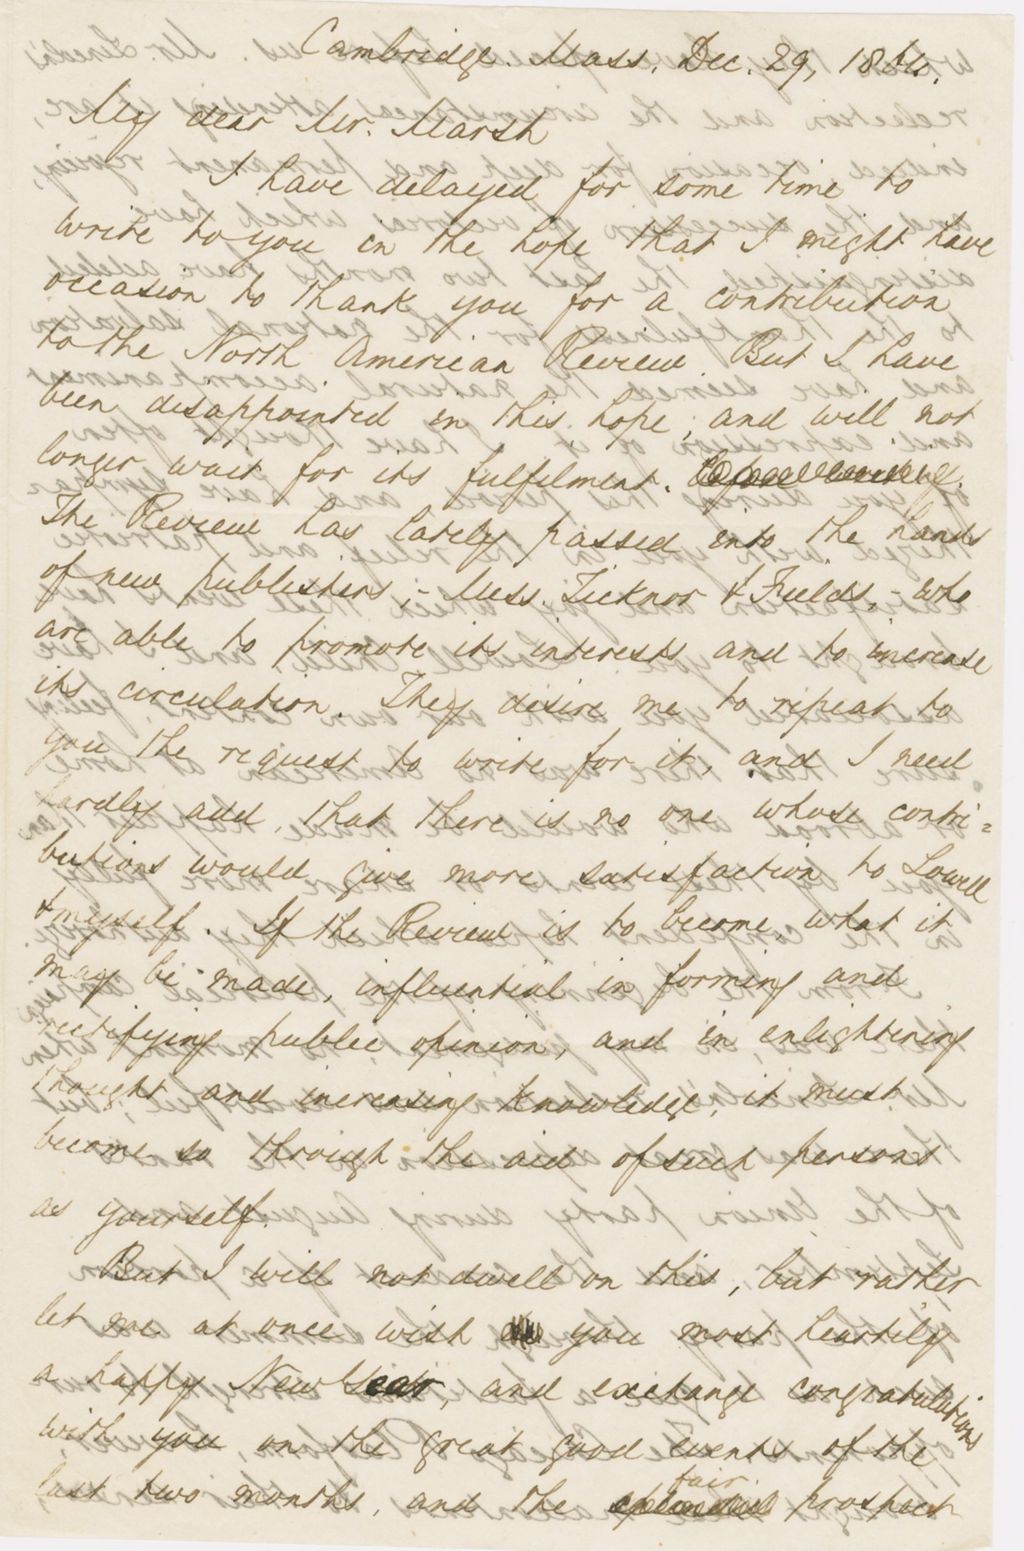 Cambridge. Mass. Dec. 29, 1864.
My dear Mr. Marsh
I have delayed for some time to
write to you in the hope that I might have
occasion to thank you for a contribution
to the North American Review. But I have
been disappointed in this hope, and will not
longer wait for its fulfilment.
The Review has lately passed into the hands
of new publishers, - Mess. Ticknor & Fields, - who
are able to promote its interests and to increase
its circulation. They desire me to repeat to
you the request to write for it, and I need
hardly add, that there is no one whose contri=
butions would give more satisfaction to Lowell
& myself. If the Review is to become what it
may be made, influential in forming and
rectifying public opinion, and in enlightening
thought and increasing knowledge, it must
become so through the aid of such persons
as yourself.
But I will not dwell on this, but rather
let me at once wish you most heartily
a happy New Year, and exchange congratulations
with you on the great good events of the
last two months, and the fair prospect